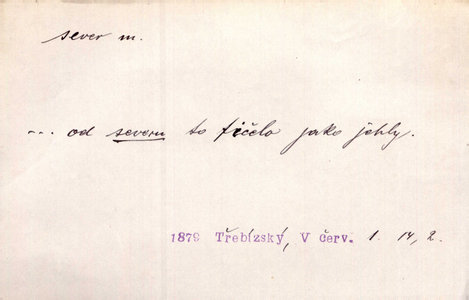 sever m.
... od severu to fičelo jako jehly.
1879 Třebízský, V červ. 1. 14, 2.